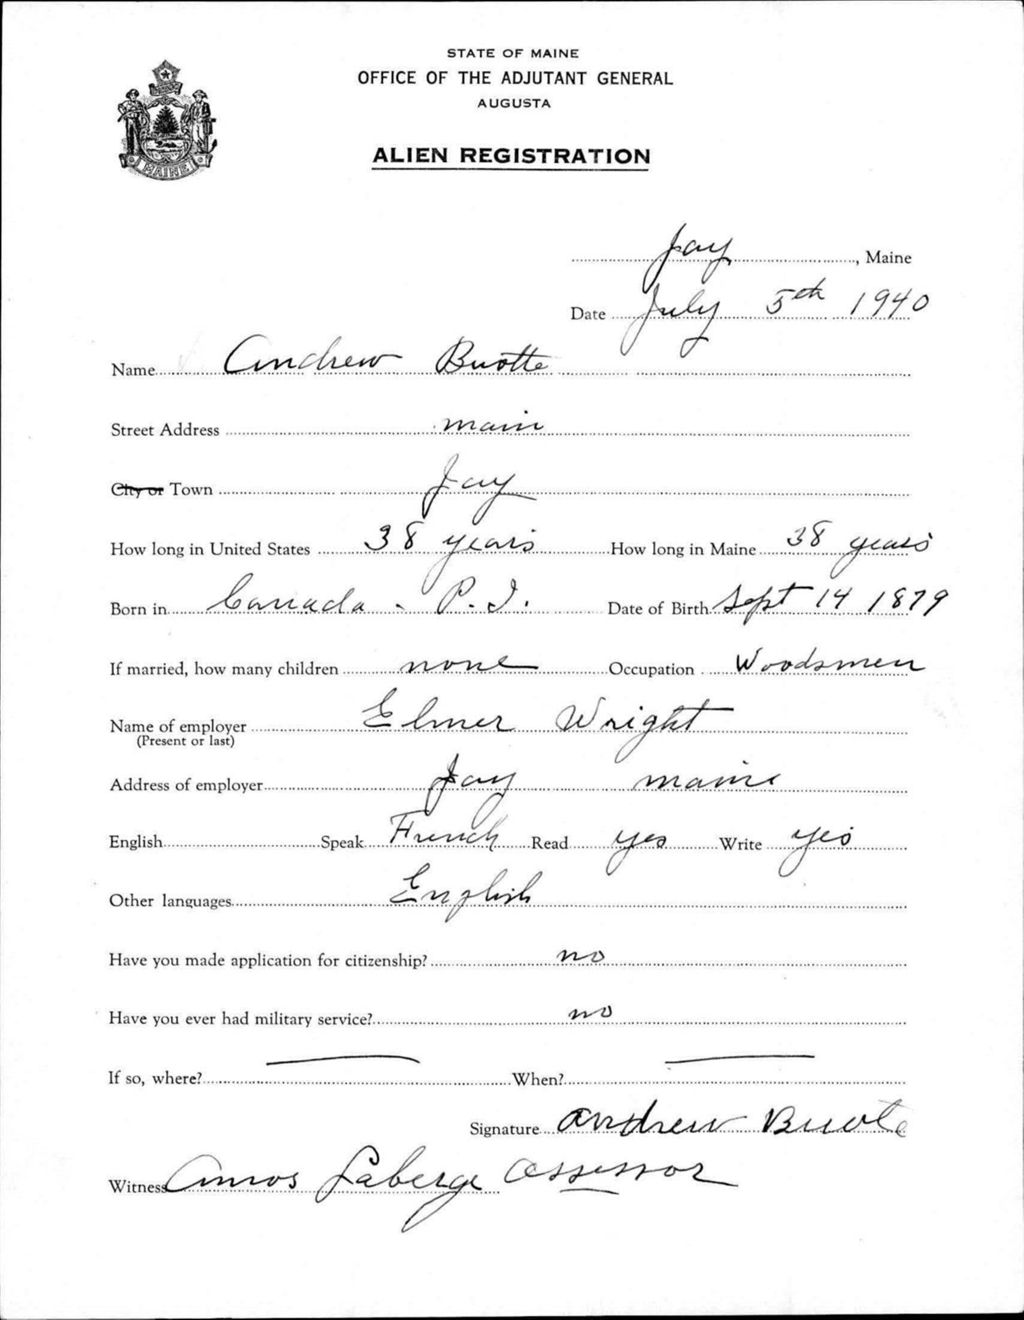 STATE OF MAINE
OFFICE OF THE ADJUTANT GENERAL
AUGUSTA
ALIEN REGISTRATION
MAINE
Jay, Maine
Date July 5th 1940
Name Andrew Buotte
Street Address main
City or Town Jay
How long in United States 38 years How long in Maine 38 years
Born in Canada - P. I. Date of Birth Sept 14 1879
If married, how many children none Occupation Woodsmen
Name of employer Elmer Wright
(Present or last)
Address of employer Jay maine
English Speak French Read yes Write yes
Other languages English
Have you made application for citizenship? no
Have you ever had military service? no
If so, where? When?
Signature Andrew Buote
Witness Amos Laberge Assessor